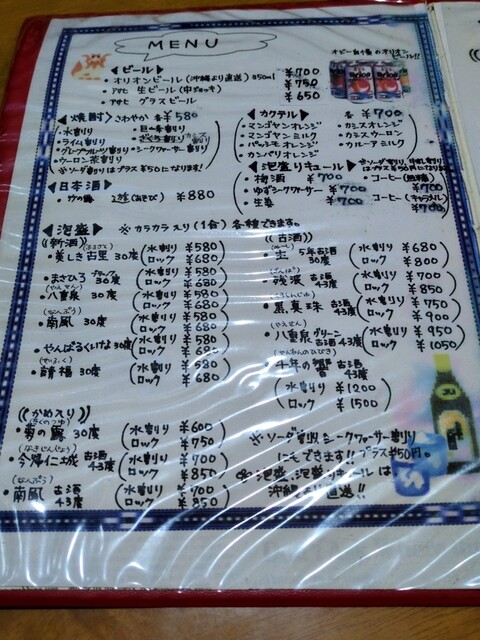 MENU
オピー自慢のオリオンビール!!
◀ビール▶
・オリオンビール(沖縄より直送)350ml ¥700
・アサヒ 生ビール(中ジョッキ) ¥750
・アサヒ グラスビール ¥650
◀焼酎▶さわやか 各¥580
・水割り
・ライム割り
・グレープフルーツ割り
・シークワーサー割り
・ウーロン茶割り
※ソーダ割りはプラス¥50になります!
◀日本酒▶
¥880
◀カクテル▶ 各¥700
・マンゴヤンオレンジ
・マンゴヤンミルク
・パッシモオレンジ
・カンパリオレンジ
・カシスオレンジ
・カシスウーロン
・カルーアミルク
◀泡盛リキュール▶
・梅酒 ¥700
・ゆずシークワーサー ¥700
・生姜 ¥700
※ソーダ割り、牛乳割りはプラス¥50になります!
・コーヒー(黒糖) ¥700
・コーヒー(キャラメル) ¥700
◀泡盛▶ ※カラカラ入り(1合)各種できます。
((新酒))
・美しき古里 30度 (水割り ¥580 ロック ¥680
・まさひろ 30度 (水割り ¥580 ロック ¥680
・八重泉 30度 (水割り ¥580 ロック ¥680
(なんぷう)
・南風 30度 (水割り ¥580 ロック ¥680
・やんばるくいな 30度 (水割り ¥580 ロック ¥680
・請福 30度 (水割り ¥580 ロック ¥680
((古酒))
5年古酒 30度 (水割り ¥680 ロック ¥800
(ざんぱ)
・残波 古酒 43度 (水割り ¥700 ロック ¥850
・黒真珠 古酒 43度 (水割り ¥750 ロック ¥900
・八重泉グリーン 古酒 43度 (水割り ¥950 ロック ¥1050
・千年の響 古酒 43度
(水割り ¥1200
ロック ¥1500
((かめ入り))
(きくのつゆ)
・菊の露 30度 (水割り ¥600 ロック ¥750
(なきじんじょう)
・今帰仁城 古酒 43度 (水割り ¥700 ロック ¥850
(なんぷう)
・南風 古酒 43度 (水割り ¥700 ロック ¥850
※ソーダ割り、シークワーサー割り
にもできます!!プラス¥50円。
※泡盛、泡盛リキュールは
沖縄より直送!!